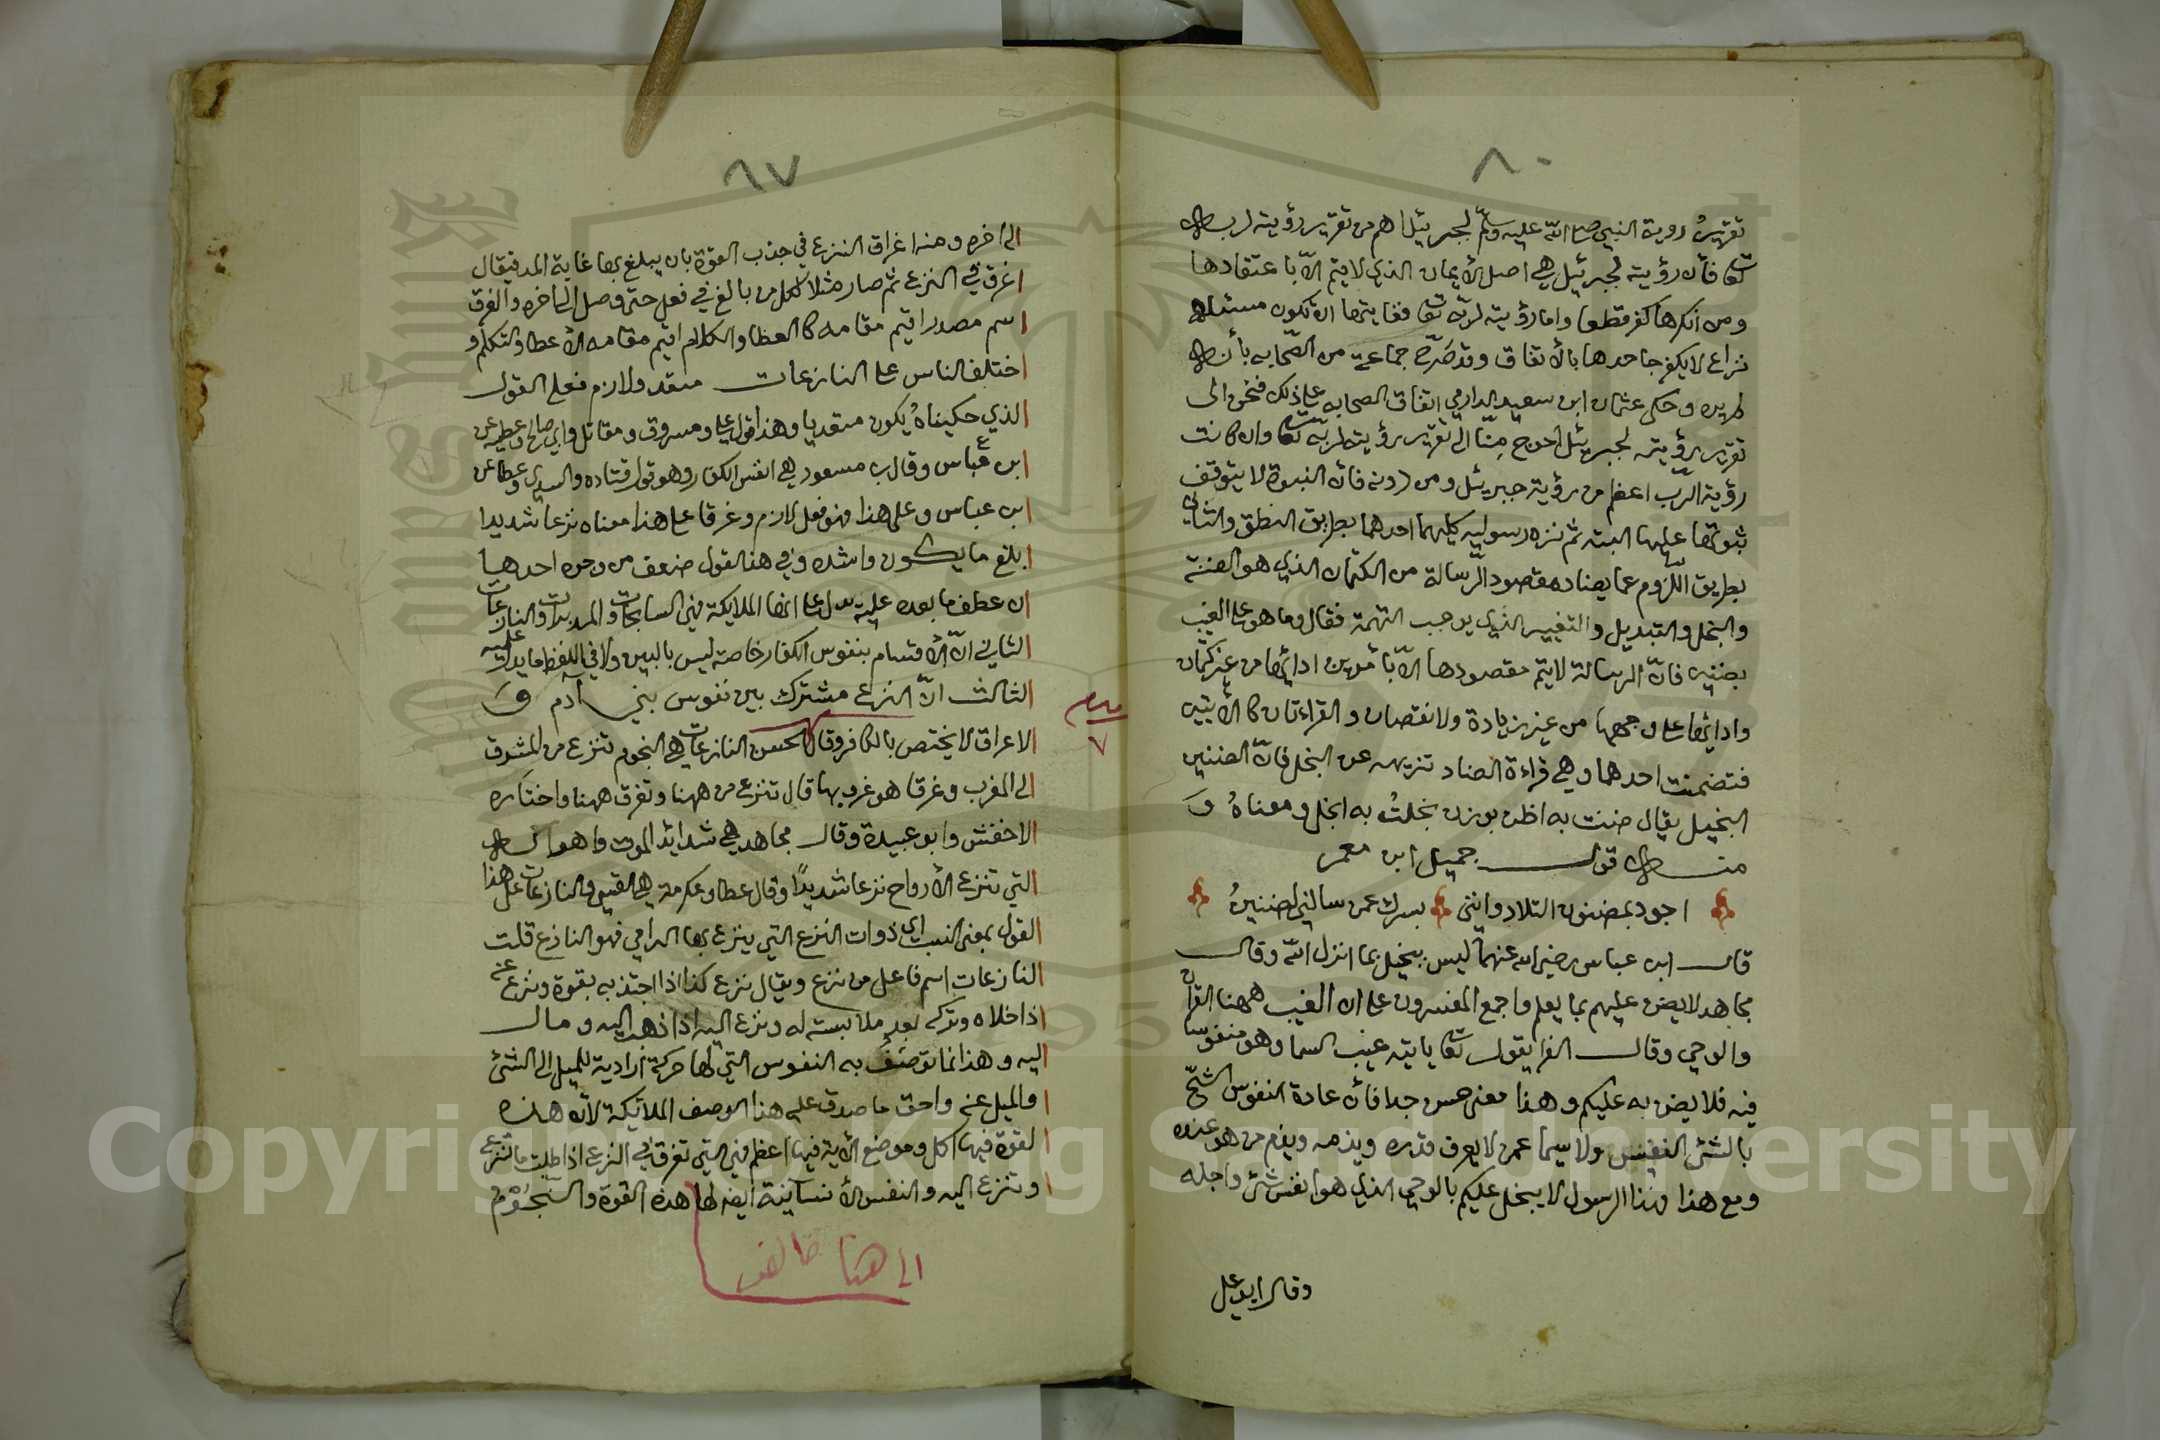 ٨٠
تقرير روية النبي صلى الله عليه وسلم لجبريئل اهم من تقرير رؤيته لربه
تعا فأن رؤيته لجبرئيل هي اصل الأيمان الذي لا يتم الّا باعتقادها
ومن أنكرها كفر قطعا واما رؤيته لربّه تعا فغايتها ان تكون مسئله
نزاع لا يكفر جاحدها بالأتفاق وقد صَرّح جماعة من الصّحابه بأنه
لم يره وحكى عثمان ابن سعيد الدارمي اتفاق الصحابه على ذلك فنحن الى
تقرير رؤيته لجبريئل احوج مِنّا الى تقرير رؤيته لربّه تعا وان كانت
رؤية الرّب اعظم من رؤية جبريئل ومن دونه فأن النبوة لا يتوقف
ثبوتها عليها البته ثم نزه رسوليه كليهما احدهما بطريق النطق والثاني
بطريق اللّزوم عما يضاد مقصود الرّسالة من الكتمان الذي هو الضنة
والبخل والتبديل والتغيير الذي يوجب التهمة فقال وما هو على الغيب
بضنين فانّ الرسالة لا يتم مقصودها الّا بأمرين ادائها من غير كتمان
وادائها على وجهها من غير زيادة ولا نقصان والقراءتان كالأيتين
فتضمنت احدهما وهي قراءة الضاد تنزيهه عن البخل فانّ الضنين
البخيل يقال ضننت به اظن بوزن بخلتُ به ابخل ومعناهُ وَ
منه قول جميل ابن معمر
اجود بمضنون التلاد وانني بسرك عمن سالني لضنينُ
قال ابن عباس رضي الله عنهما ليس ببخيل بما انزل الله وقال
مجاهد لا يضن عليهم بما يعلم واجمع المفسرون على ان الغيب ههنا القرآن
والوحي وقال الفرا يقول تعا يا يتيه غيب السما وهو منفوسا
فيه فلا يضن به عليكم وهذا معنى حسن جدا فأن عادة النفوس الشحّ
بالشئ النفيس ولا سيما عمن لا يعرف قدره ويذمه ويذم من هو عنده
ومع هذا فهذا الرسول لا يبخل عليكم بالوحي الذي هو انفس شئ واجله
وقال ابو علي
٦٧
الى اخره ومنه اغراق النزع في جذب القوة بان يبلغ بها غاية المد فيقال
اغرق في النزع ثم صار مثلا لكل من بالغ في فعل حتى وصل الى اخره والغرق
اسم مصدر اقيم مقامه كالعطا والكلام اقيم مقامه الأعطا والتكلم و
اختلف الناس على النازعات متعد ولازم فعلى القول
الذي حكيناهُ يكون متعديا وهذا قول علي ومسروق ومقاتل وابي صالح وعطيه عن
ابن عباس وقال بن مسعود هي انفس الكفار وهو قول قتاده والسدي وعطا عن
ابن عباس وعلى هذا فهو فعل لازم وغرقا على هذا معناه نزعا شديدا
ابلغ ما يكون واشده وفي هذا القول ضعف من وجوه احدها
ان عطف ما بعده عليه يدل على انها الملايكة فهي السابحات والمدبرات والنازعات
الثاني انّ الأقسام بنفوس الكفار خاصة ليس بالبين ولا في اللفظ ما يدل عليه
الثالث انّ النزع مشترك بين نفوس بني آدم وَ
الاغراق لا يختص بالكافر وقال الحسن النازعات هي النجوم تنزع من المشرق
الى المغرب وغرقا هو غروبها قال تنزع من ههنا وتغرق ههنا واختاره
الاخفش وابو عبيدة وقال مجاهد هي شدايد الموت واهواله
التي تنزع الأرواح نزعا شديدًا وقال عطا وعكرمة هي القسي والنازعات على هذا
القول بمعنى النسب اي ذوات النزع التي ينزع بها الرامي فهو النازع قلت
النازعات اسم فاعل من نزع ويقال نزع كذا اذا اجتذبه بقوة ونزع عنه
اذا خلاه وتركه بعد ملابسته له ونزع اليه اذا ذهب اليه ومال
اليه وهذا انما توصف به النفوس التي لها حركة ارادية للميل الى الشئ
والميل عنه واحق ما صدق عليه هذا الوصف الملائكة لأنّ هذه
القوة فيها اكمل وموضع الأية فيها اعظم فهي التي تغرق في النزع اذا طلبت ما تنزعه
وتنزع اليه والنفس الأنسانية ايضا لها هذه القوة والنجُوْم
الى هنا